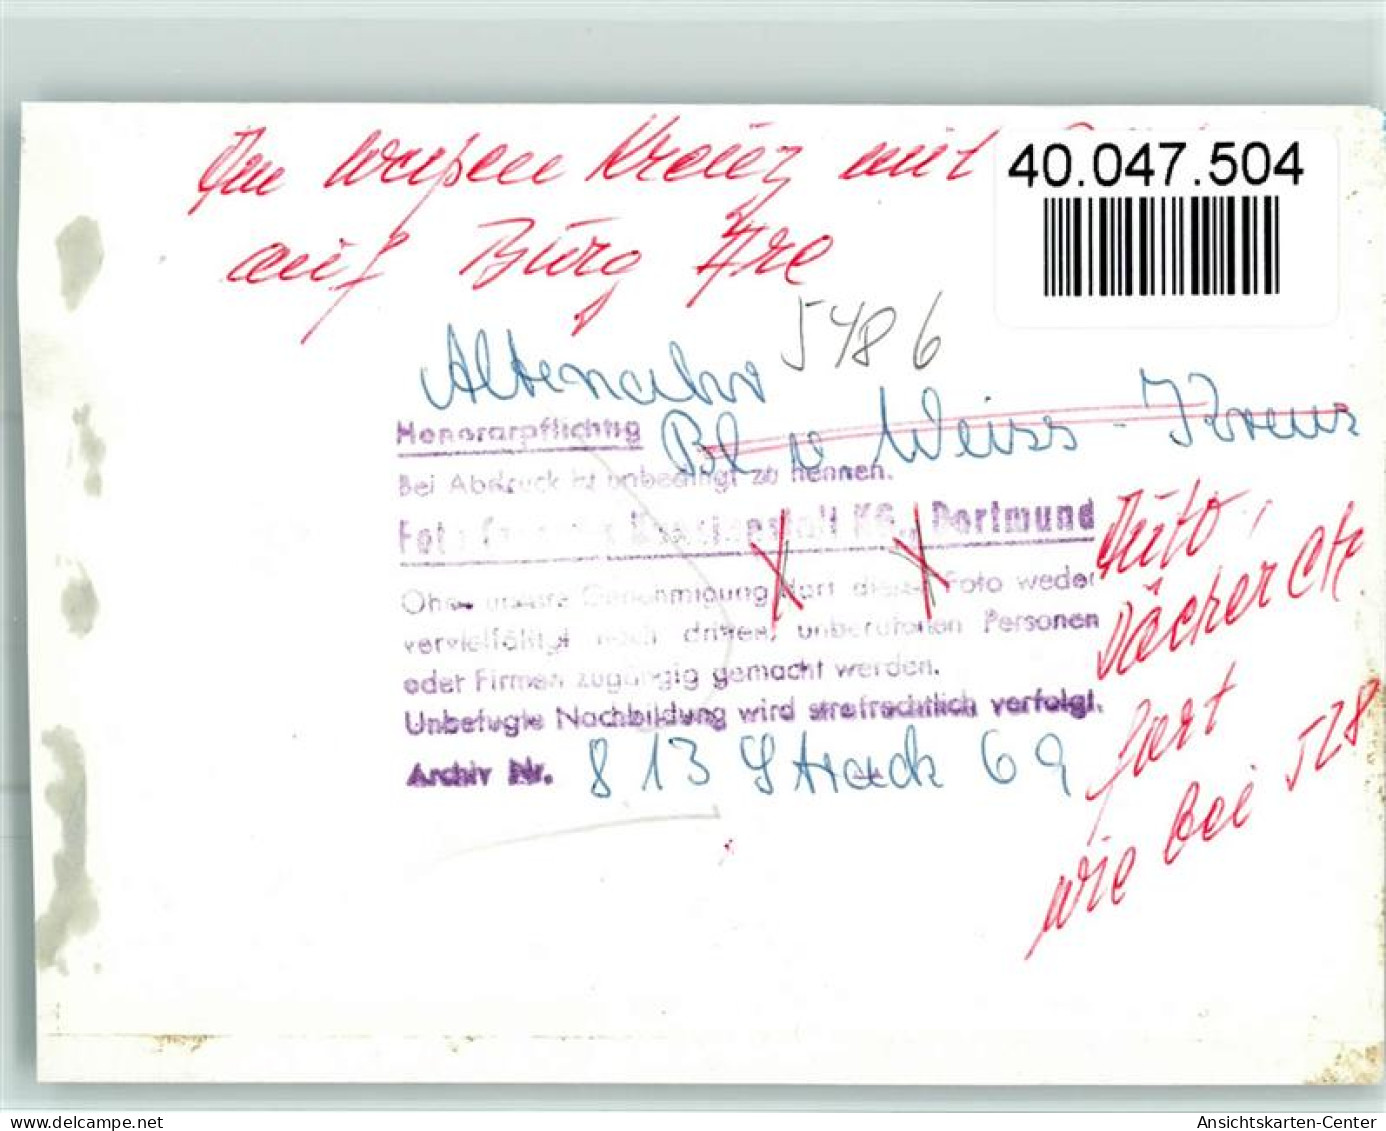 Am weißen Kreuz mit
40.047.504
auf Burg Are
5486
Altenahr
Bl v Weiss-Kreuz
Honorarpflichtig
Bei Abdruck ist unbedingt zu nennen.
Foto Kunstanstalt KG., Dortmund
Ohne unsere Genehmigung darf dieses Foto weder
vervielfältigt noch dritten, unberufenen Personen
oder Firmen zugängig gemacht werden.
Unbefugte Nachbildung wird strafrechtlich verfolgt.
Archiv Nr. 813 Strack 69
Auto,
Dächer
fort
wie bei 528
Ansichtskarten-Center
www.delcampe.net